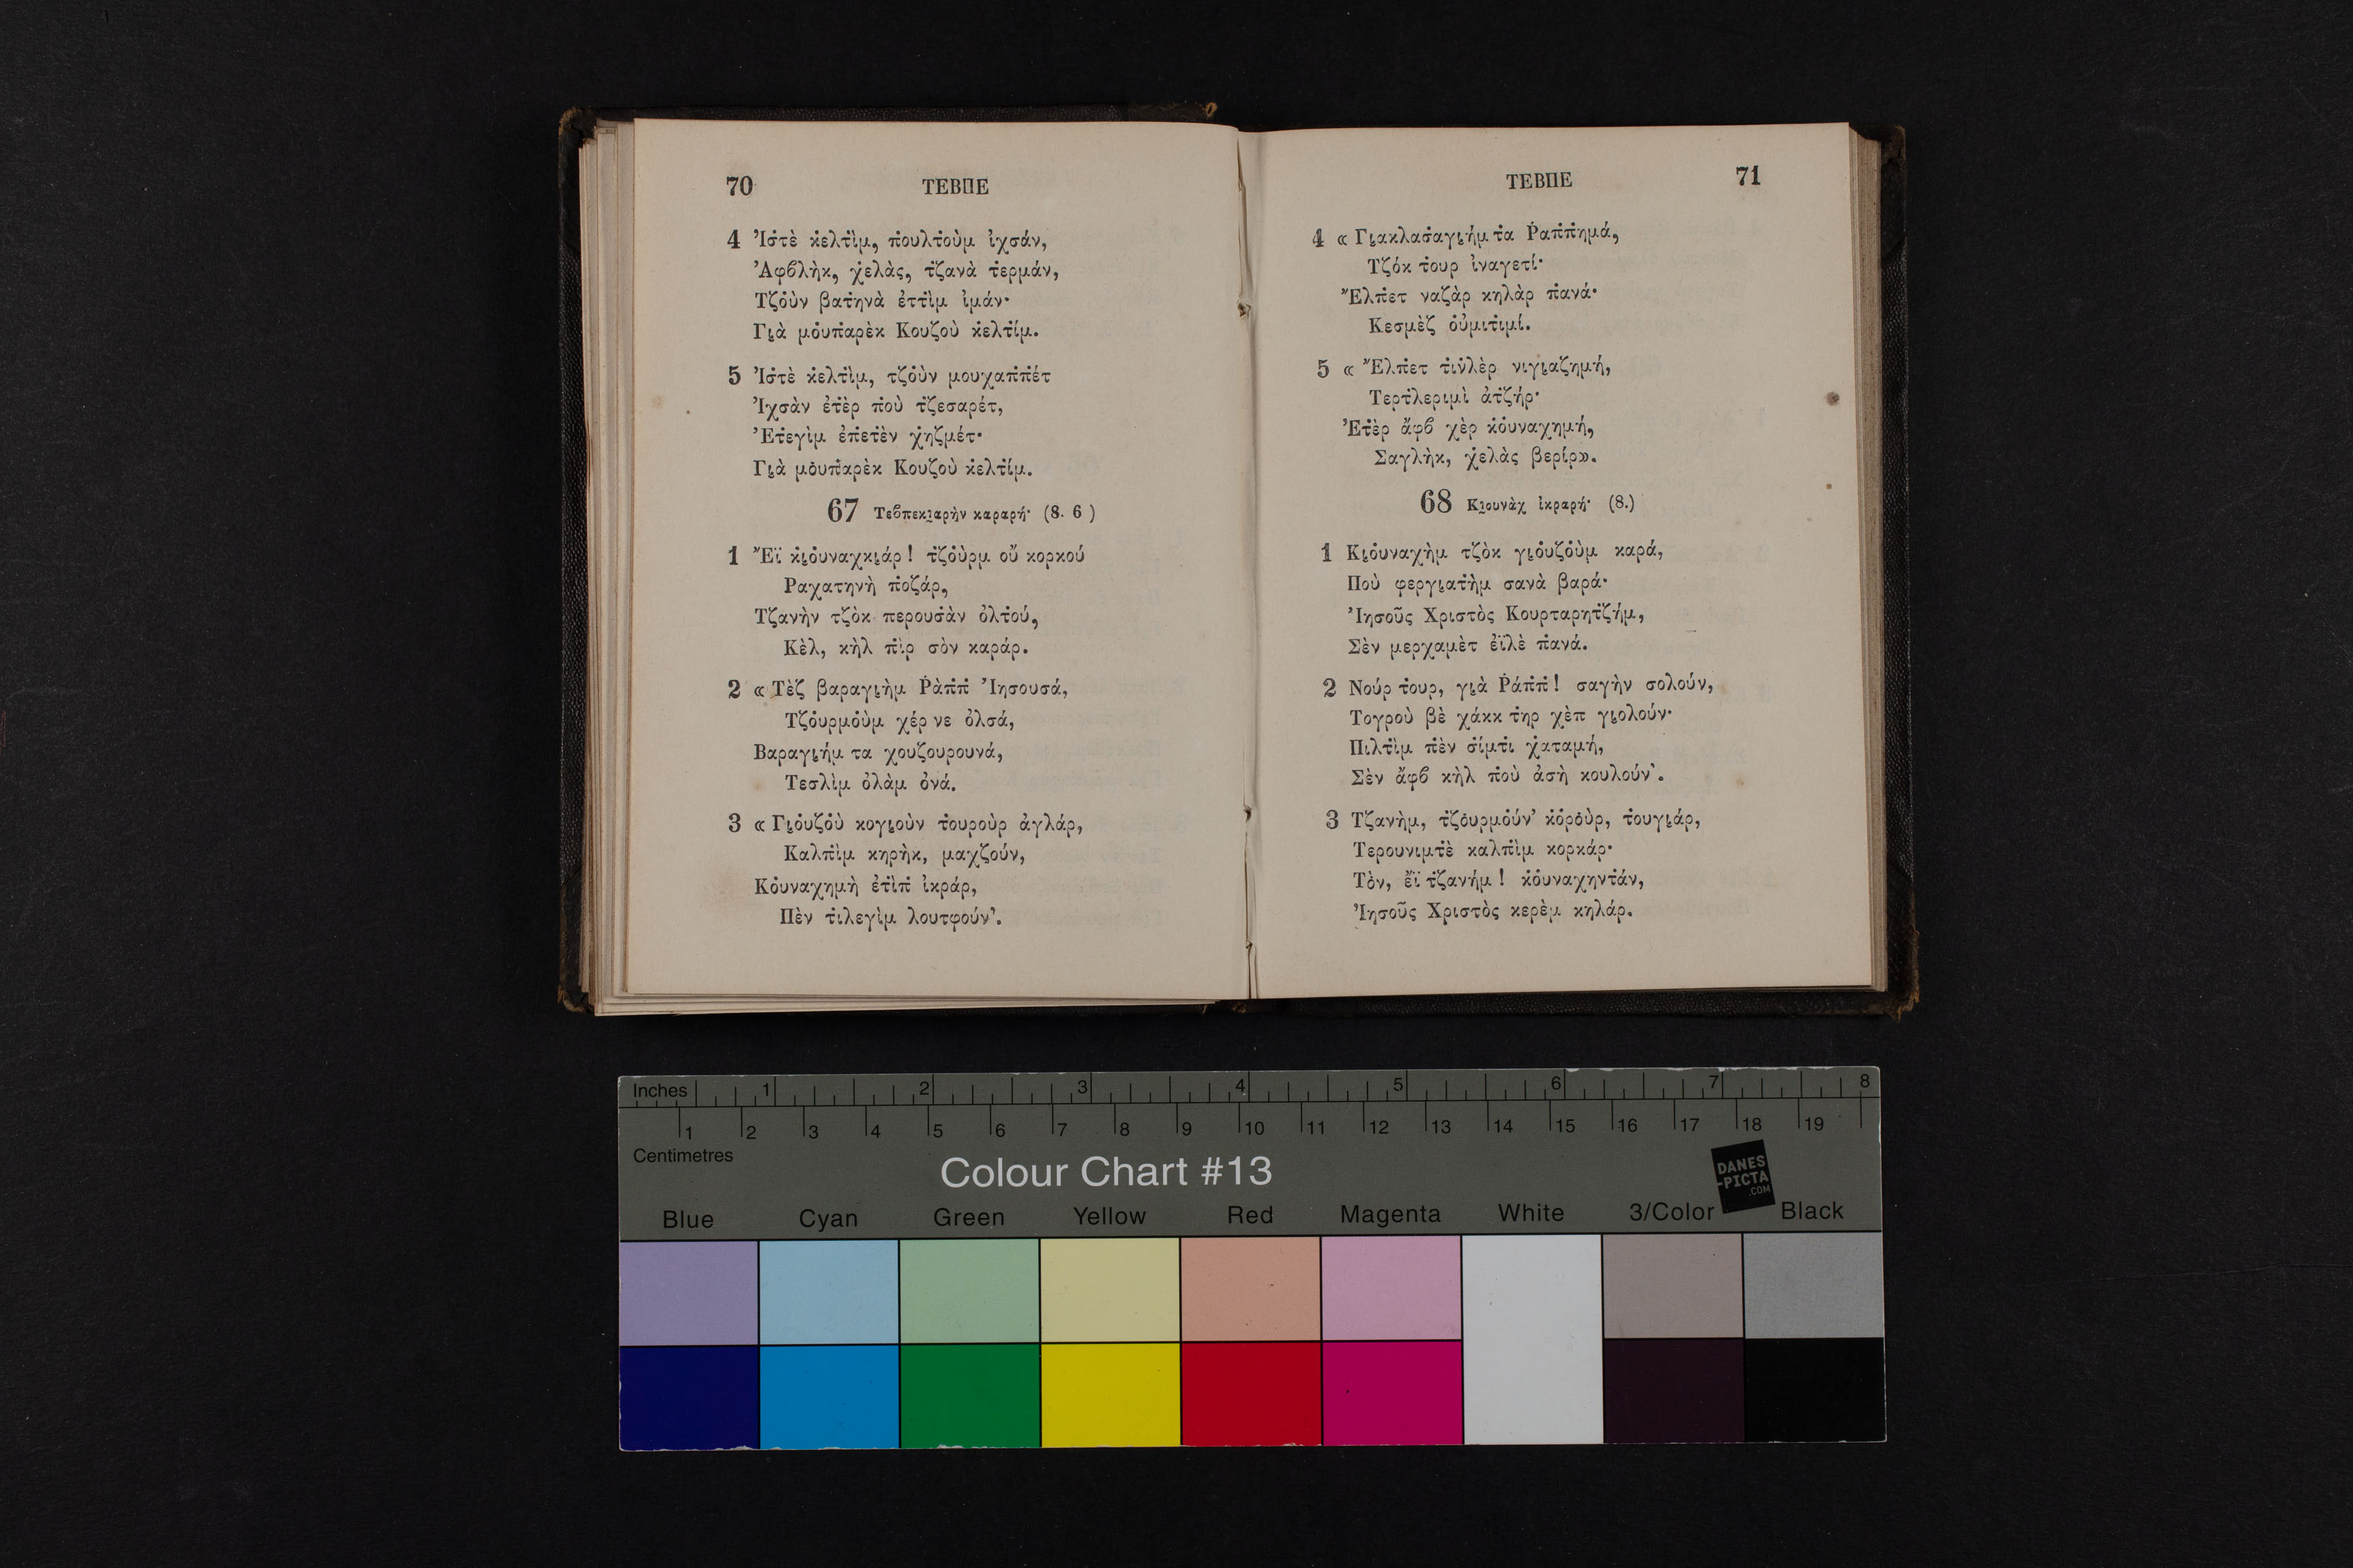 70 ΤΕΒΠΕ
4 Ἰσ̇τὲ κ̇ελτ̇ὶμ, π̇ουλτοὺμ ἰχσάν,
Ἀφϐλὴκ, χ̇ελὰς, τ̇ζανὰ τ̇ερμάν,
Τζοὺν βατ̇ηνὰ ἐττ̇ὶμ ἰμάν·
Γι̯ὰ μ̇ουπ̇αρὲκ Κουζοὺ κ̇ελτ̇ίμ.
5 Ἰσ̇τὲ κ̇ελτ̇ὶμ, τζοὺν μουχαπ̇π̇έτ
Ἰχσὰν ἐτ̇ὲρ π̇οὺ τ̇ζεσαρέτ,
Ἐτ̇εγὶμ ἐπ̇ετ̇ὲν χ̇ηζμέτ·
Γι̯ὰ μ̇ουπ̇αρὲκ Κουζοὺ κ̇ελτ̇ίμ.
67 Τεϐπεκι̯αρὴν καραρή· (8. 6 )
1 Ἔϊ κ̇ι̯ουναχκι̯άρ! τ̇ζοὺρμ οὔ κορκού
Ραχατηνὴ π̇οζάρ,
Τζανὴν τζὸκ περουσ̇ὰν ὀλτ̇ού,
Κὲλ, κὴλ π̇ὶρ σὸν καράρ.
2 « Τὲζ βαραγι̯ὴμ Ῥὰπ̇π̇ Ἰησουσά,
Τζουρμοὺμ χέρ νε ὀλσά,
Βαραγι̯ήμ τα χουζουρουνά,
Τεσλὶμ ὀλὰμ ὀνά.
3 « Γι̯ουζοὺ κογι̯οὺν τ̇ουροὺρ ἀγλάρ,
Καλπ̇ὶμ κηρὴκ, μαχζούν,
Κουναχημὴ ἐτ̇ὶπ̇ ἰκράρ,
Πὲν τ̇ιλεγὶμ λουτφούν᾽.
ΤΕΒΠΕ 71
4 « Γι̯ακλασ̇αγι̯ήμ τ̇α Ῥαπ̇π̇ημά,
Τζόκ τ̇ουρ ἰναγετί·
Ἔλπ̇ετ ναζὰρ κηλὰρ π̇ανά·
Κεσμὲζ οὐμιτ̇ιμί.
5 « Ἔλπ̇ετ τ̇ινλὲρ νιγι̯αζημή,
Τερτ̇λεριμὶ ἀτ̇ζήρ·
Ἐτ̇ὲρ ἄφϐ χὲρ κ̇ουναχημή,
Σαγλὴκ, χ̇ελὰς βερίρ».
68 Κι̯ουνὰχ ἰκραρή· (8.)
1 Κι̯ουναχὴμ τζὸκ γι̯ουζοὺμ καρά,
Ποὺ φεργι̯ατ̇ὴμ σανὰ βαρά·
Ἰησοῦς Χριστὸς Κουρταρητ̇ζήμ,
Σὲν μερχαμὲτ ἐϊλὲ π̇ανά.
2 Νούρ τ̇ουρ, γι̯ὰ Ῥάπ̇π̇! σαγὴν σολούν,
Τογροὺ βὲ χάκκ τ̇ηρ χὲπ γι̯ολούν·
Πιλτ̇ὶμ π̇ὲν σ̇ίμτ̇ι χ̇αταμή,
Σὲν ἄφϐ κὴλ π̇οὺ ἀσὴ κουλούν᾽.
3 Τζανὴμ, τ̇ζουρμούν᾽ κ̇ὁροὺρ, τ̇ουγι̯άρ,
Τερουνιμτ̇ὲ καλπ̇ὶμ κορκάρ·
Τὸν, ἔϊ τ̇ζανήμ! κ̇ουναχηντ̇άν,
Ἰησοῦς Χριστὸς κερὲμ κηλάρ.
Inches 1 2 3 4 5 6 7 8
1 2 3 4 5 6 7 8 9 10 11 12 13 14 15 16 17 18 19
Centimetres
Colour Chart #13
DANES
-PICTA
.COM
Blue Cyan Green Yellow Red Magenta White 3/Color Black